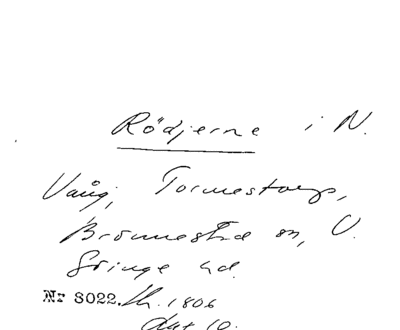 Rödjerne i N.
Vång, Tormestorp,
Brönnestad sn, V.
Göinge hd.
Nr 8022. Lh. 1806
Akt 10.